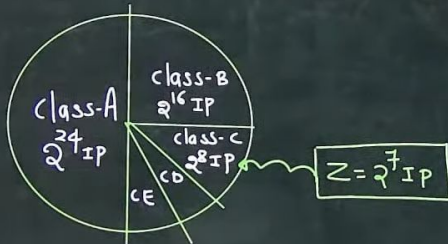 Class-A
2^24 IP
Class-B
2^16 IP
Class-C
2^8 IP
CD
CE
Z = 2^7 IP